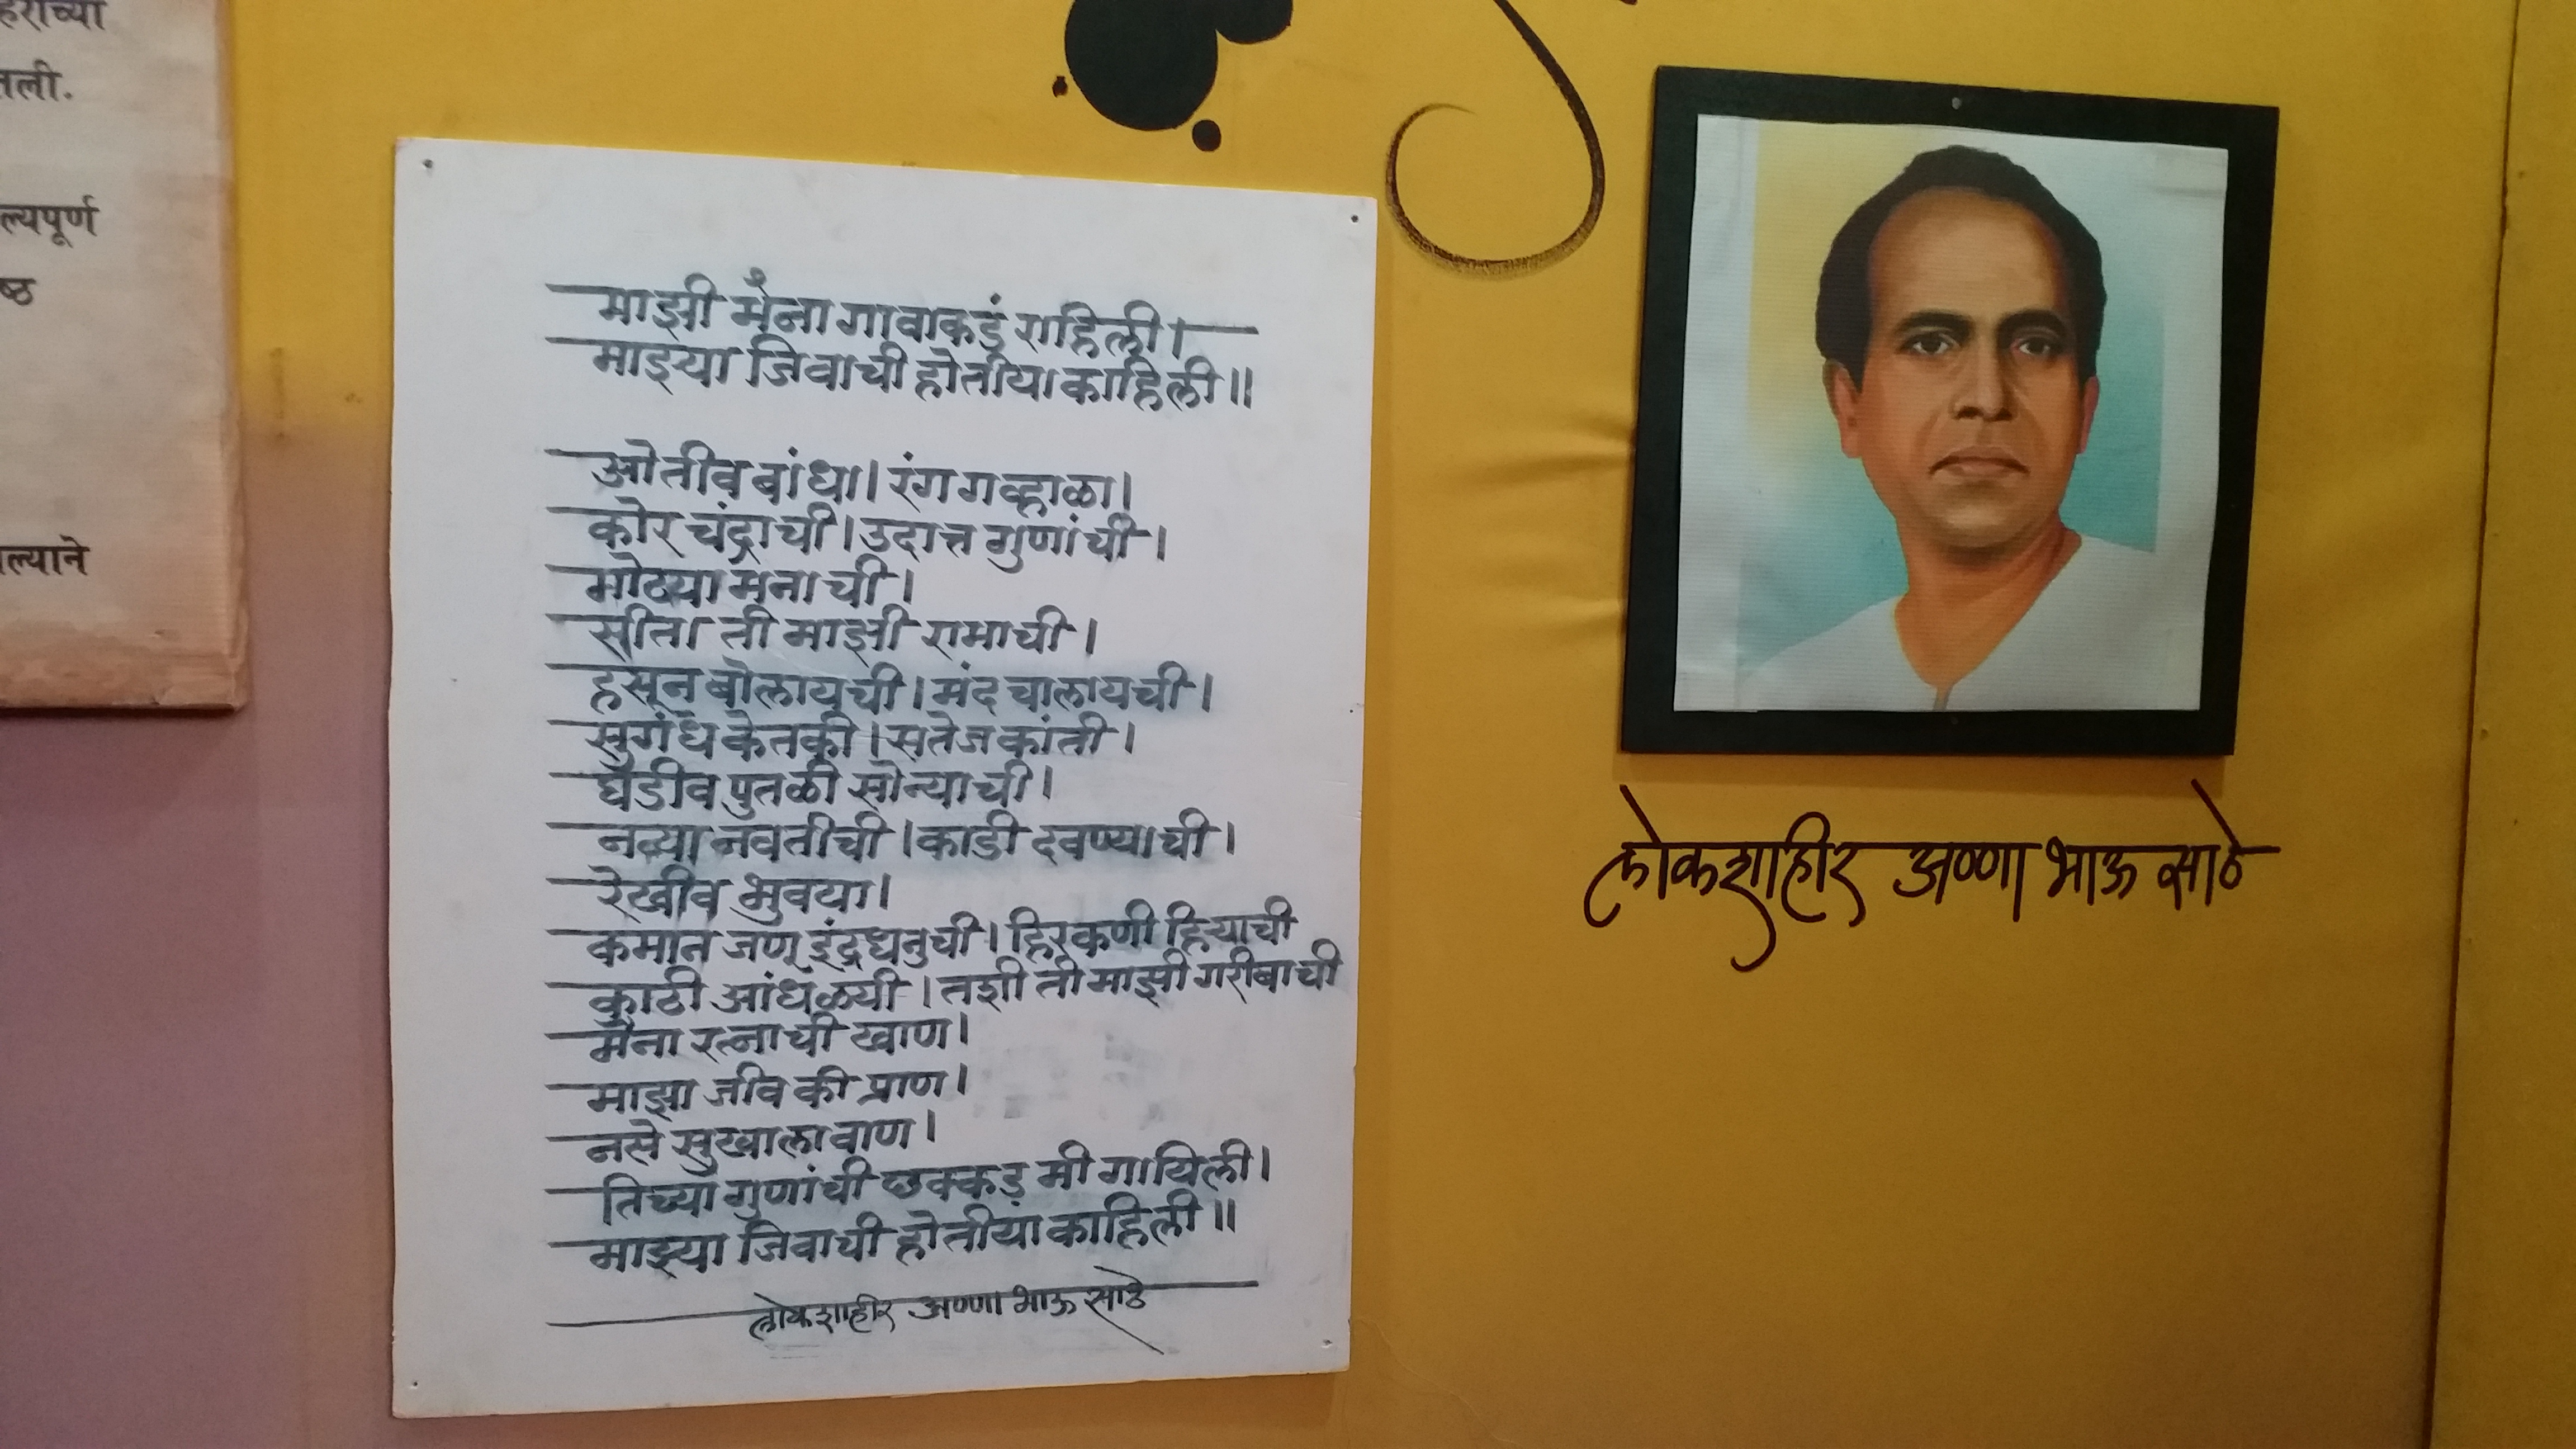 हराच्या
तली.
ल्यपूर्ण
ष्ठ
ल्याने
माझी मैना गावाकडं राहिली।
माझ्या जिवाची होतीया काहिली॥
ओतीव बांधा। रंग गव्हाळा।
कोर चंद्राची। उदात्त गुणांची।
मोठ्या मनाची।
सीता ती माझी रामाची।
हसून बोलायची। मंद चालायची।
सुगंध केतकी। सतेज कांती।
घडीव पुतळी सोन्याची।
नव्या नवतीची। काडी दवण्याची।
रेखीव भुवया।
कमान जणू इंद्रधनुची। हिरकणी हिऱ्याची
काठी आंधळ्यी। तशी ती माझी गरीबाची
मैना रत्नाची खाण।
माझा जीव की प्राण।
नसे सुखाला वाण।
तिच्या गुणांची छक्कड़ मी गायिली।
माझ्या जिवाची होतीया काहिली॥
लोकशाहीर अण्णा भाऊ साठे
लोकशाहीर अण्णा भाऊ साठे